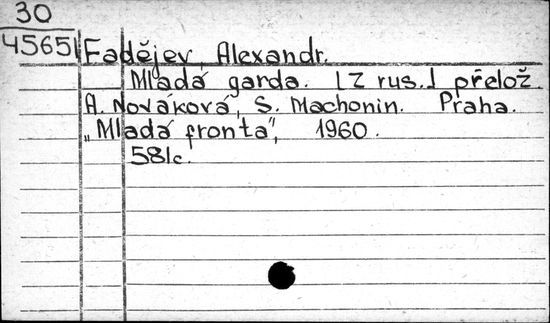 30
45651
Fadějev, Alexandr.
Mladá garda. [Z rus.] přelož.
A. Nováková, S. Machonin. Praha.
„Mladá fronta”, 1960.
581c.